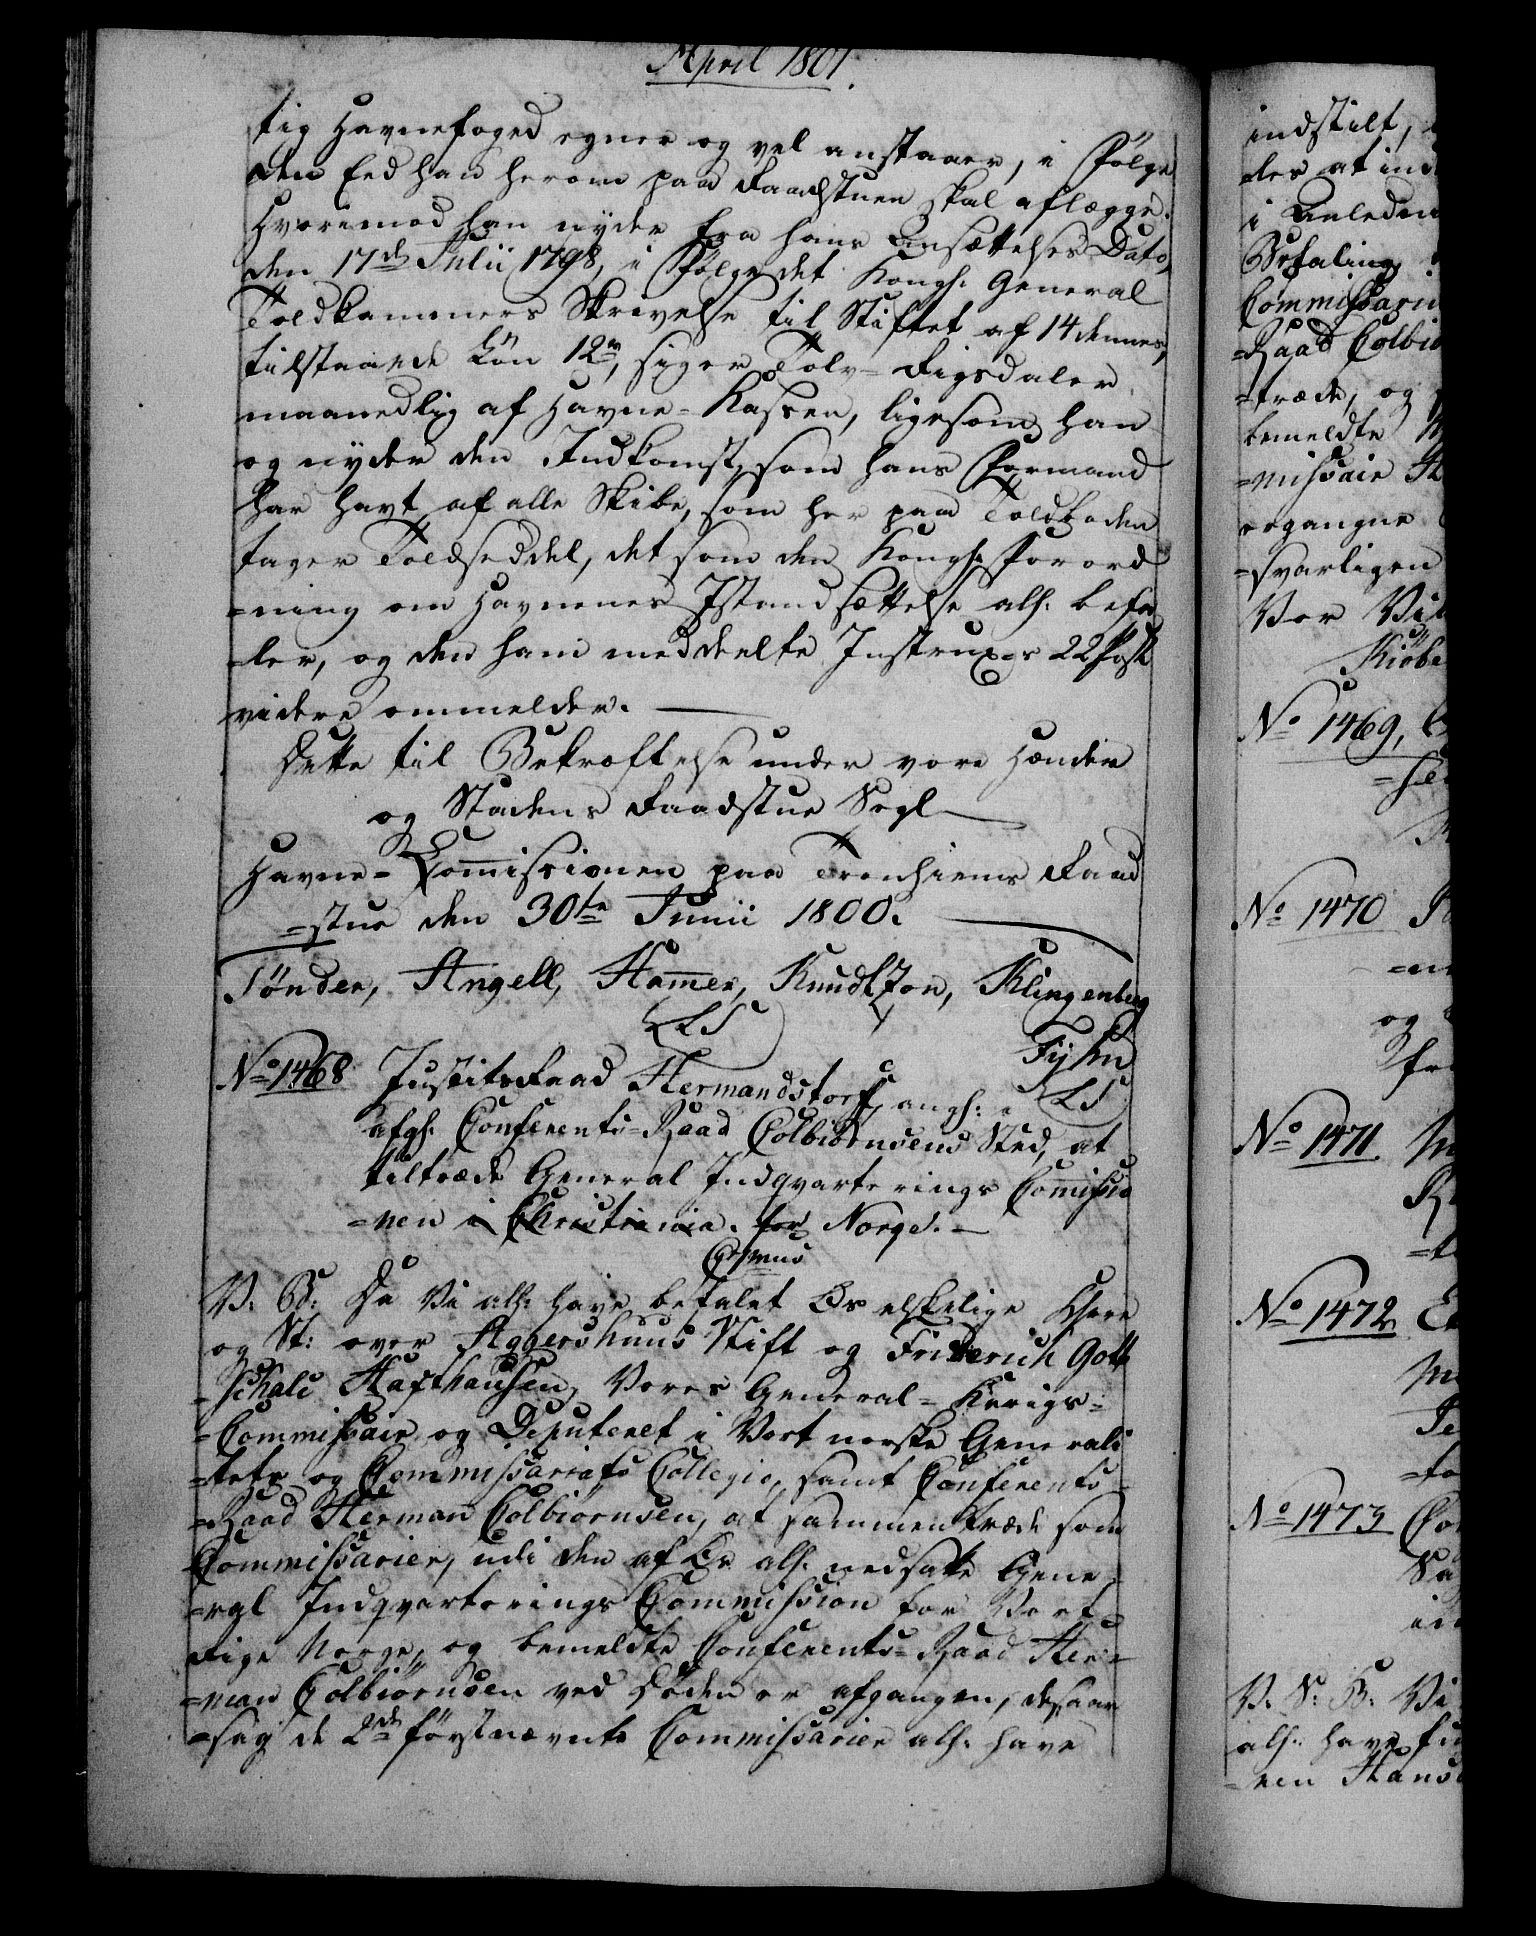 April 1801.
tig Havnefoged egner og vel anstaaer, i Følge
den Eed han herom paa Raadstuen skal aflægge.
Hvorimod han nyder fra hans Ansættelses Dato,
den 17de Julii 1798, i Følge det Kongl: General
Toldkammers Skrivelse til Stiftet af 14 dennes,
tilstaaede Løn 12 rd, siger Tolv Rigsdaler
maanedlig af Havne-Kassen, ligesom han
og nyder den Indkomst, som hans Formand
har havt af alle Skibe, som her paa Toldboden
tager Toldseddel, det som den Kongl: Forord
=ning om Havnenes Istandsættelse alh: befa
=ler, og den ham meddeelte Instruxes 22 Post
videre ommelder.
Dette til Bekræftelse under vore Hænder
og Stadens Raadstue Segl
Havne-Commissionen paa Tronhiems Raad
=stue den 30te Junii 1800.
Tønder, Angell, Hamer, Knudtzon, Klingenberg
LS
Fyhn
LS
No 1468 Justits Raad Hermandstorf, angl: i
afgl: Conferents-Raad Colbiørnsens Sted, at
tiltræde General Indqvarterings Commissio
=nen i Christiania. for Norge.
C7mus
V: G: Da Vi alh: have befalet Os elskelige Herr
og St: over Aggershuus Stift og Friderich Gott
=schalc Haxthausen, Vores General-Krigs-
=Commissair og Deputeret i Vort norske Generali
=tets og Commissariats Collegio, samt Conferents-
=Raad Herman Colbiørnsen, at sammentræde som
Commissarier, udi den af Os alh: nedsatte Gene
=ral Indqvarterings Commission for Vort
Rige Norge, og bemeldte Conferents-Raad Her-
=man Colbiørnsen ved Døden er afgangen, desaar
=sag de 2de førstnævnte Commissarier alh: have
indstilt,
der at ind
i Anledni
Befaling
Commissari
=Raad Colbiø
=træde, og
bemeldte
=missair H
ergangne
=svarligen
Vor Vil
Kiøbe
No 1469,
No 1470
og
No 1471
No 1472
No 1473
V: S: B: Vi
alh: have fu
=ren Hans